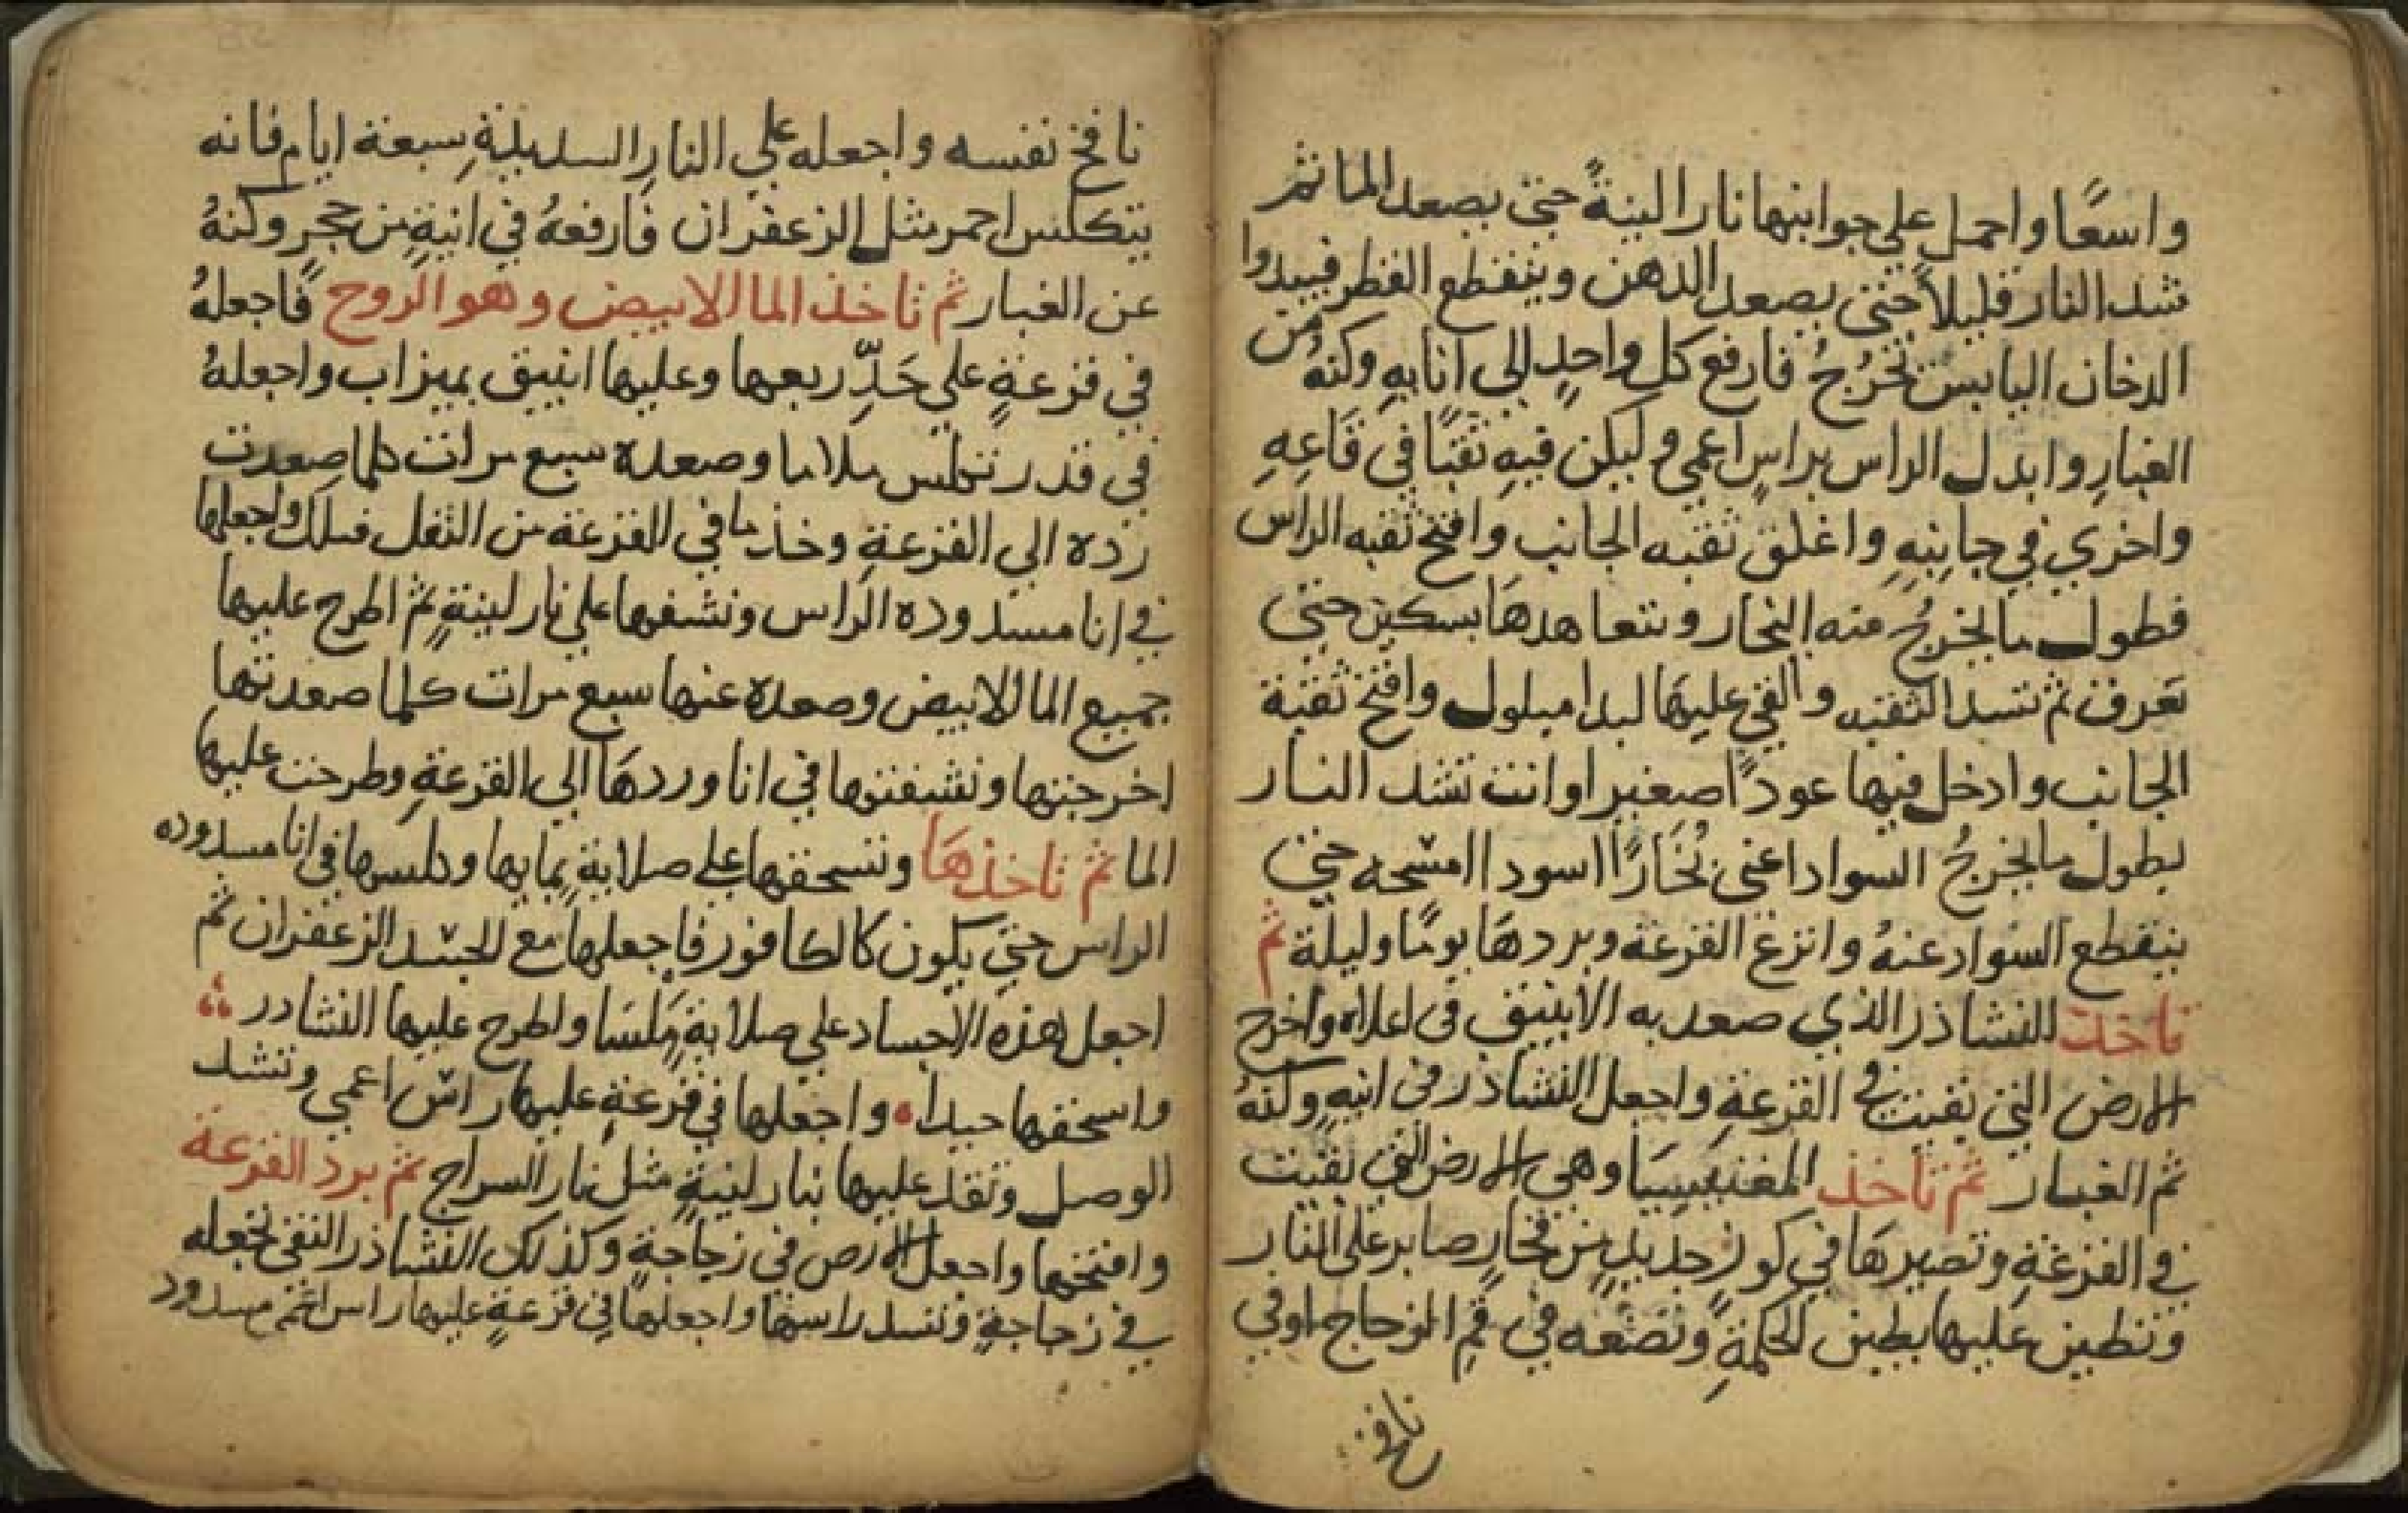 واسعًا واحمل على جوانبها نارا لينةً حتى يصعد الما ثم
شد النار قليلاً حتى يصعد الدهن وينقطع القطر فيبدوا
الدخان اليابس تخرُجُ فارفع كل واحدٍ الى انايهِ وكنهُ من
الغبارِ وابدل الراس براسٍ اعمي وليكن فيهِ ثقبًا في قاعِهِ
واخري في جانبهِ واغلق ثقبه الجانب وافتح ثقبه الراس
فطول ما يخرجُ منه البخار وتتعاهدها بسكين حتى
تعرف ثم تسد الثقبه والقي عليها لبدا مبلول وافتح ثقبة
الجانب وادخل فيها عودًا صغيرا وانت تشد النار
بطول ما يخرجُ السواد اعنى بُخارًا اسود حتى
ينقطع السواد عنهُ وانزع القزعة وبردها يومًا وليلة ثم
تاخذ النشاذر الذي صعد به الانبيق في اعلاه واخرج
الارض التي بقيت في القزعةِ واجعل النشاذر في انيهٍ وكنهُ
ثم الغبار ثم تاخذ المغنيسيا وهي الارض التي بقيت
في القزعةِ وتصيرها في كوزٍ جديدٍ من فخارٍ صابر على النار
وتطين عليها بطين الحكمةِ وتضعه في قمِ الزجاج اوفي
نافخ
نافخ نفسه واجعله علي النارِ السديلةِ سبعة ايام فانه
يتكلس احمر مثل الزعفران فارفعهُ في انيةٍ من حجرٍ وكنهُ
عن الغبار ثم تاخذ الما الابيض وهو الروح فاجعلهُ
في قزعةٍ علي حَدِّ ربعها وعليها انبيق بميزاب واجعلهُ
في قدر ملا ما وصعده سبع مرات كلما صعدت
رده الي القزعةِ وخذ ما في القزعة من الثفل واجعلها
في انا مسدوده الراس ونشفها علي نار لينةٍ ثم اطرح عليها
جميع الما الابيض وصعده عنها سبع مرات كلما صعدتها
اخرجتها ونشفتها في انا وردها الي القزعةِ وطرحت عليها
الما ثم تاخذها وتسحقها علي صلابةٍ بمايها في انا مسدوده
الراس حتي يكون كالكافور فاجعلها مع الجسد الزعفران ثم
اجعل هذه الاجساد علي صلابةٍ مَلسَا واطرح عليها النشادر
واسحقها جيدا واجعلها في قزعةٍ عليها راس اعمي وتشد
الوصل وتقد عليها نار لينةٍ مثل نار السراج ثم برد القزعة
وافتحها واجعل الارض في زجاجةٍ وكذلك النشاذر النقي تجعله
في زجاجةٍ وتسد راسها واجعلها في قزعةٍ عليها راس مسدود